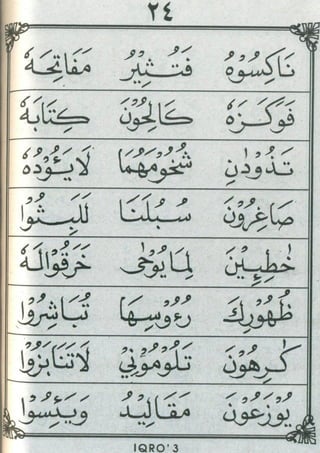 ٢٤
نَاكِسُوْهُ فَتُثِيْرُ مَفَاتِحَهٗ
فَوَكَزَهٗ كَالِحُوْنَ كِتَابَهٗ
تَذُوْدَانِ شُحُوْمَهُمَا لَا يَـُٔوْدُهٗ
صَاغِرُوْنَ سُبُلَنَا لَلَبِثُوْا
خٰطِـِٕيْنَ لِمَا يُوْحٰى خَرَقُوْا لَهٗ
ظُهُوْرِكَ رُءُوْسِهَا تُبَاشِرُوْا
كٰرِهُوْنَ تَلُوْمُوْنِيْ لَا تَنَابَزُوْا
يُوْزَعُوْنَ مَقَالِيْدُ وَيَـِٔسُوْا
IQRO' 3